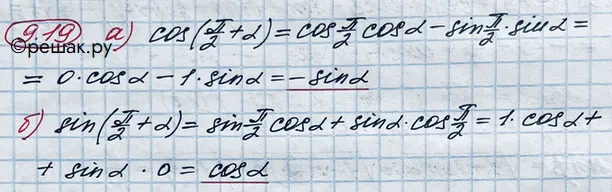 9.19 а) cos(π/2 + α) = cos π/2 cosα − sin π/2 · sinα =
©решак.ру
= 0 · cosα − 1 · sinα = − sinα
б) sin(π/2 + α) = sin π/2 cosα + sinα · cos π/2 = 1 · cosα +
+ sinα · 0 = cosα